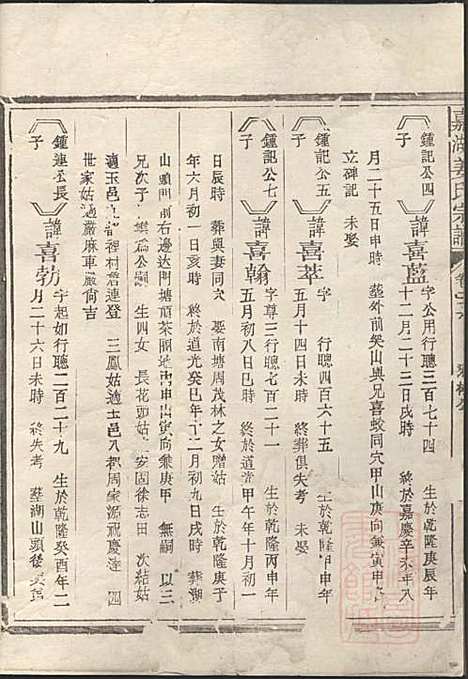 嘉湖姜氏宗譜
鍾記公四子
諱喜藍
字公用行聰三百七十四 生於乾隆庚辰年
十二月二十三日戌時 終於嘉慶辛未年八
月二十五日申時 塟外前𡊮山與兄喜蛟同穴甲山庚向兼寅申
立碑記 未娶
鍾記公五子
諱喜萃
字 行聰四百六十五 生於乾隆甲申年
五月十四日未時 終葬俱失考 未娶
鍾記公七子
諱喜翰
字尊三行聰七百二十一 生於乾隆丙申年
五月初八日巳時 終於道光甲午年十月初一
日辰時 葬與妻同穴 娶南塘周茂林之女贈姑 生於乾隆庚子
年六月初一日亥時 終於道光癸巳年十二月初九日戌時 葬湖
山頭門前右邊達門塘頭茶園地內申山寅向兼庚甲 無嗣 以三
兄次子 雲為公嗣 生四女 長花頭姑 安固徐志田 次結姑
適玉邑 都裡村詹連登 三鳳姑適玉邑八都周家源祝慶達 四
世家姑適嚴麻車嚴尙吉
鍾連公長子
諱喜勃
字起如行聰二百二十九 生於乾隆癸酉年二
月二十六日未時 終失考 塟湖山頭後